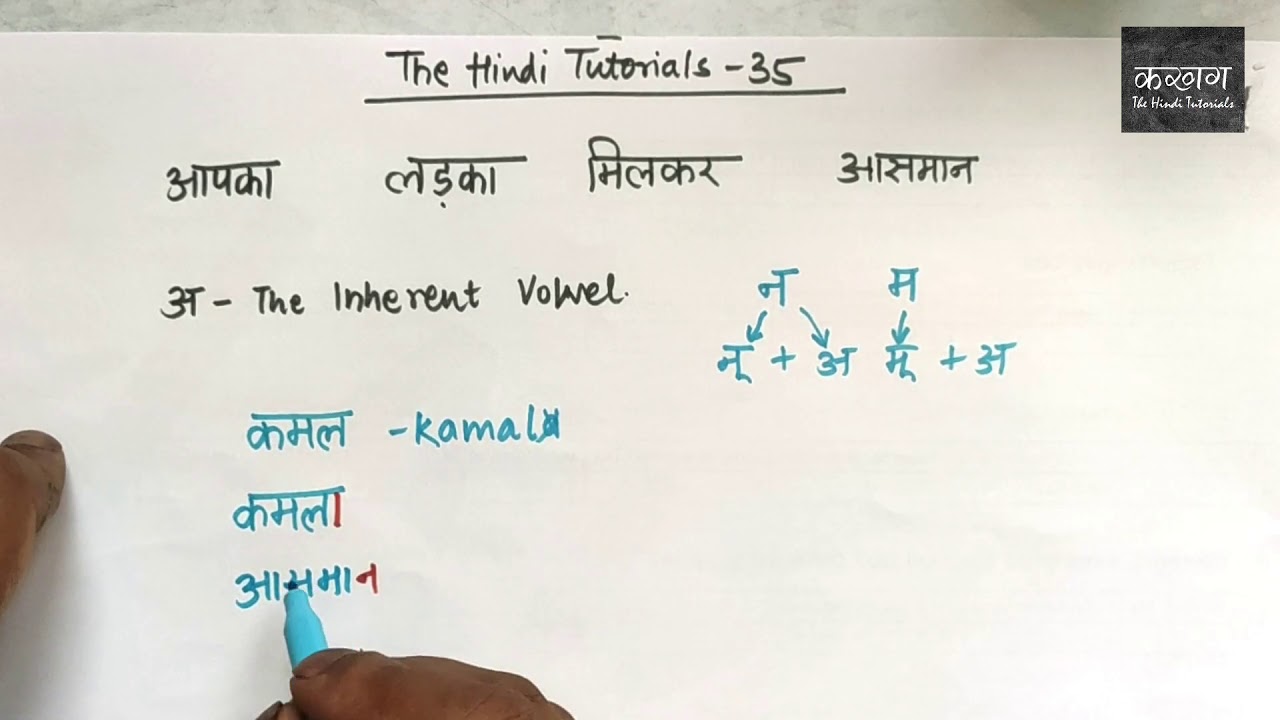 The Hindi Tutorials - 35
कखग
The Hindi Tutorials
आपका लड़का मिलकर आसमान
अ - The Inherent Vowel.
न म
न् + अ म् + अ
कमल - Kamal
कमला
आसमान